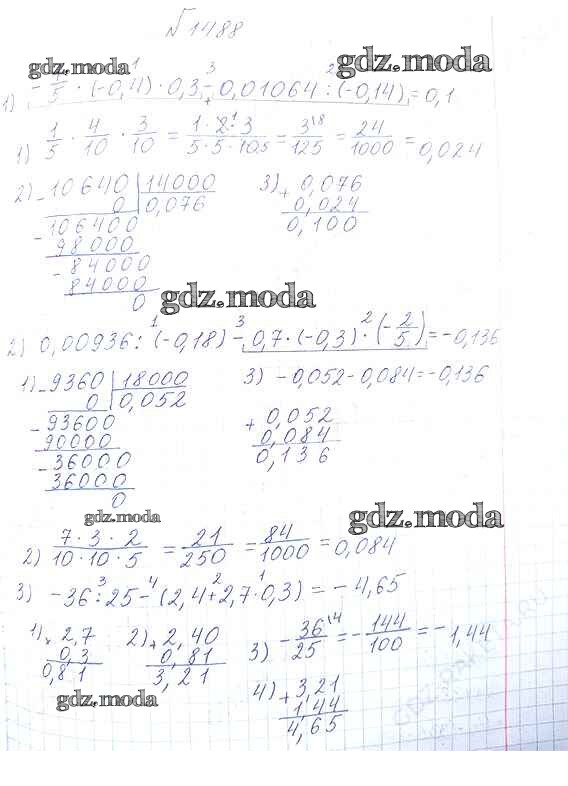 №1488
gdz.moda gdz.moda
1) -1/5 · (-0,4) · 0,3 - 0,01064 : (-0,14) = 0,1
1) 1/5 · 4/10 · 3/10 = 1·2·3/5·5·10 5 = 3\8/125 = 24/1000 = 0,024
2) - 10640 | 14000 3) + 0,076
0 | 0,076 0,024
- 106400 0,100
98000
- 84000
84000
0 gdz.moda
2) 0,00936 : (-0,18) - 0,7 · (-0,3) · (-2/5) = -0,136
1) - 9360 | 18000 3) -0,052-0,084=-0,136
0 | 0,052
- 93600 + 0,052
90000 0,084
- 36000 0,136
36000
0
gdz.moda gdz.moda
2) 7·3·2/10·10·5 = 21/250 = 84/1000 = 0,084
3) -36 : 25 - (2,4+2,7·0,3) = -4,65
1) × 2,7 2) + 2,40 3) -36\4/25 = -144/100 = -1,44
0,3 0,81
0,81 3,21
gdz.moda 4) + 3,21
1,44
4,65